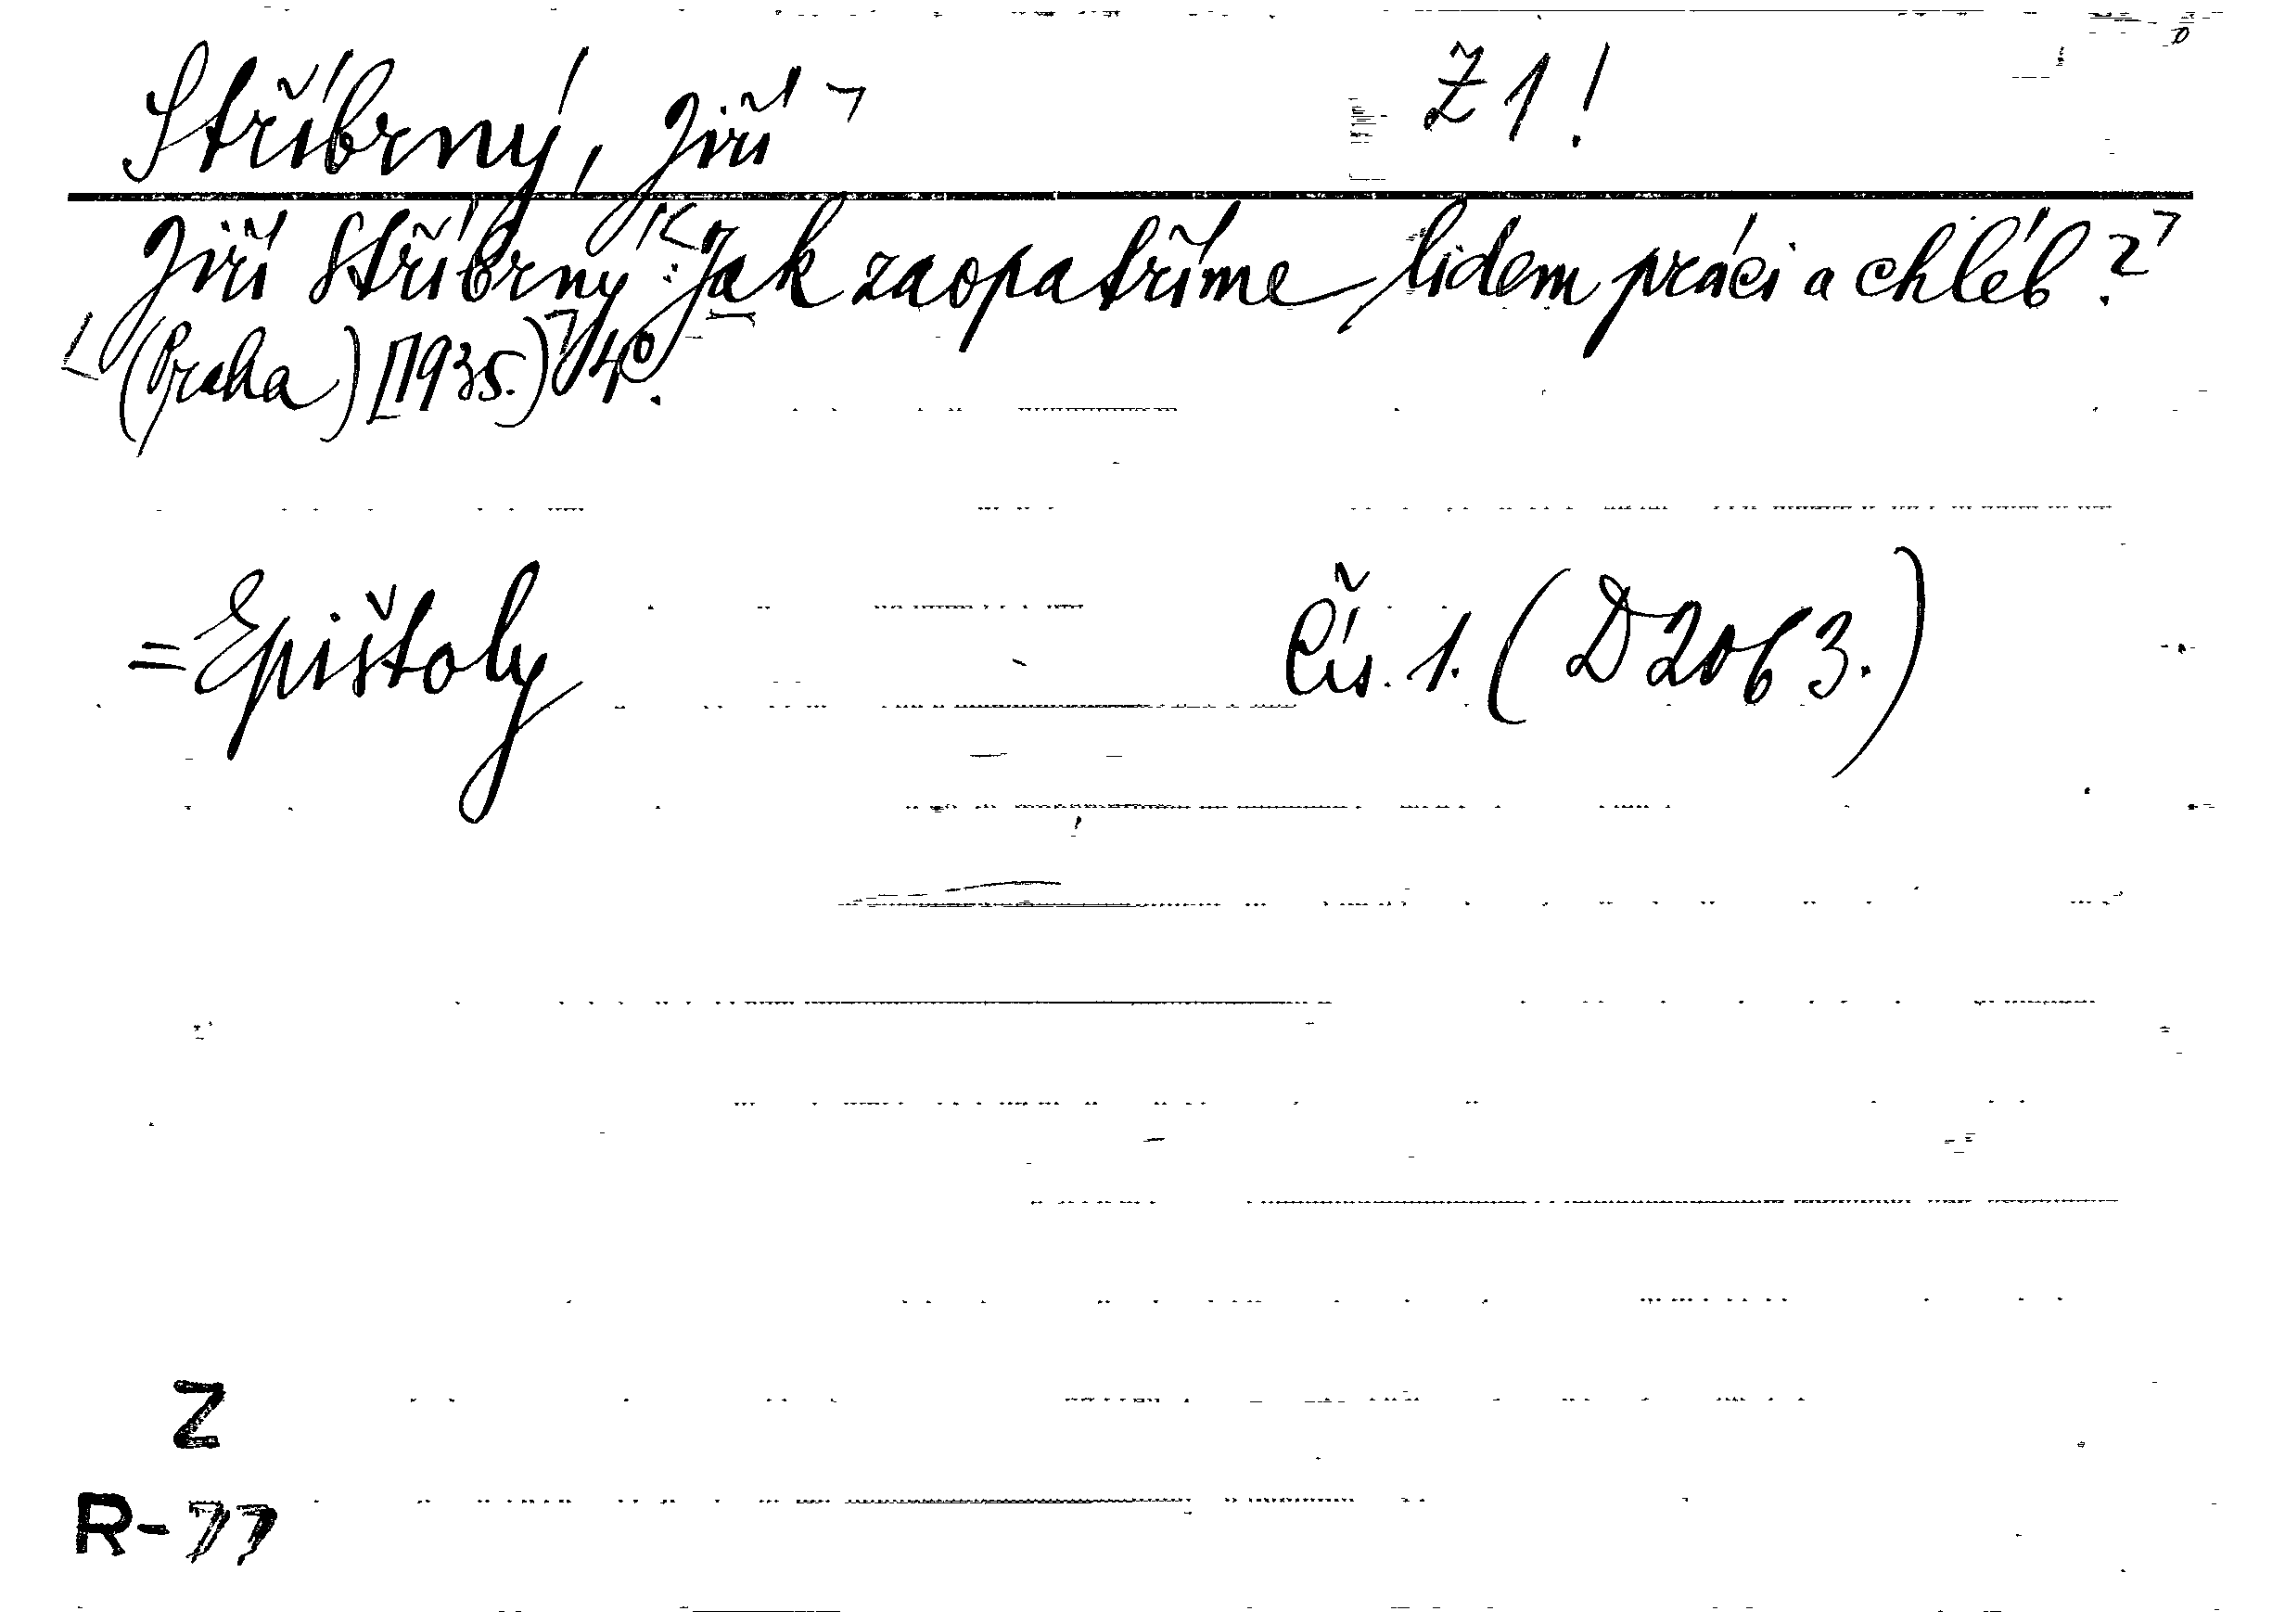 Stříbrný, Jiří ž 1!
Jiří Stříbrný: Jak zaopatříme lidem práci a chléb?
(Praha) [1935.) 4°.
=Epištoly Čís. 1. (D2063.)
Z
R-77